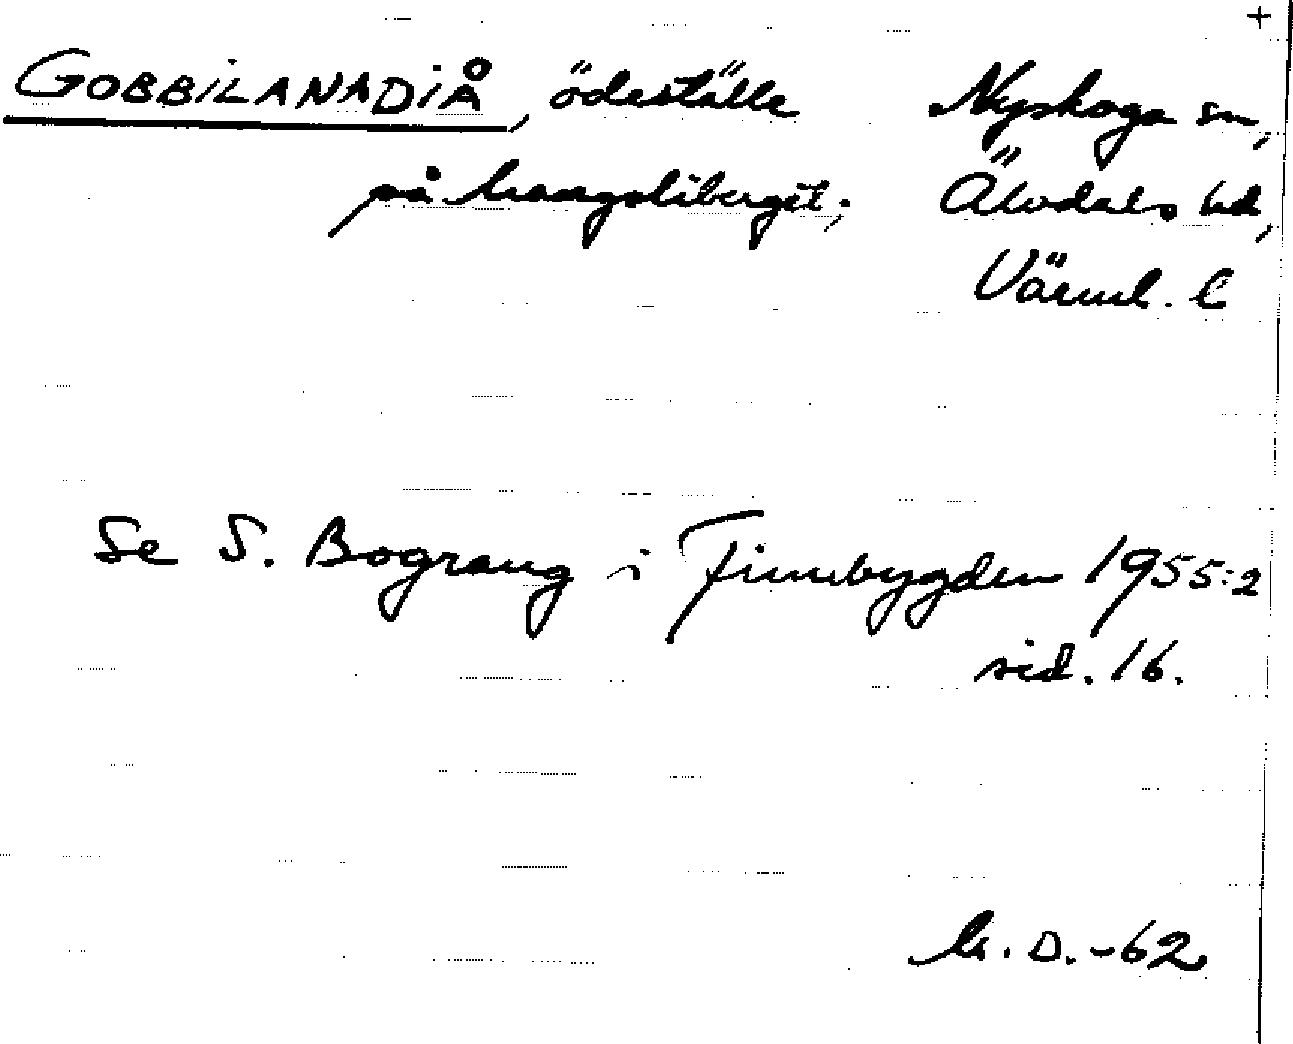 +
GOBBILANADIÅ, ödeställe Nyskoga sn,
på Mangsliberget; Älvdals hd,
Värml. l
Se S. Bograng i Finnbygden 1955:2
sid. 16.
M. D. -62